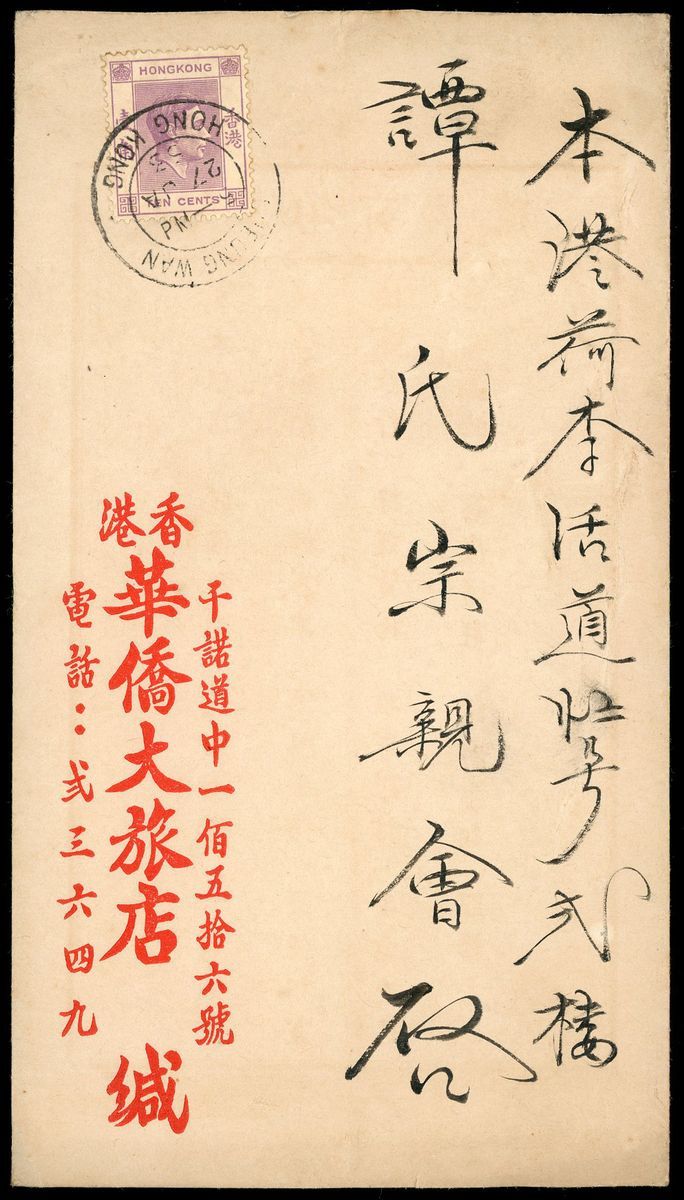 本港荷李活道 号弍楼
譚氏宗親會啓
干諾道中一佰五拾六號
香港
華僑大旅店 緘
電話：弍三六四九
HONGKONG
香港
TEN CENTS
HONG KONG
27
PM
WAN